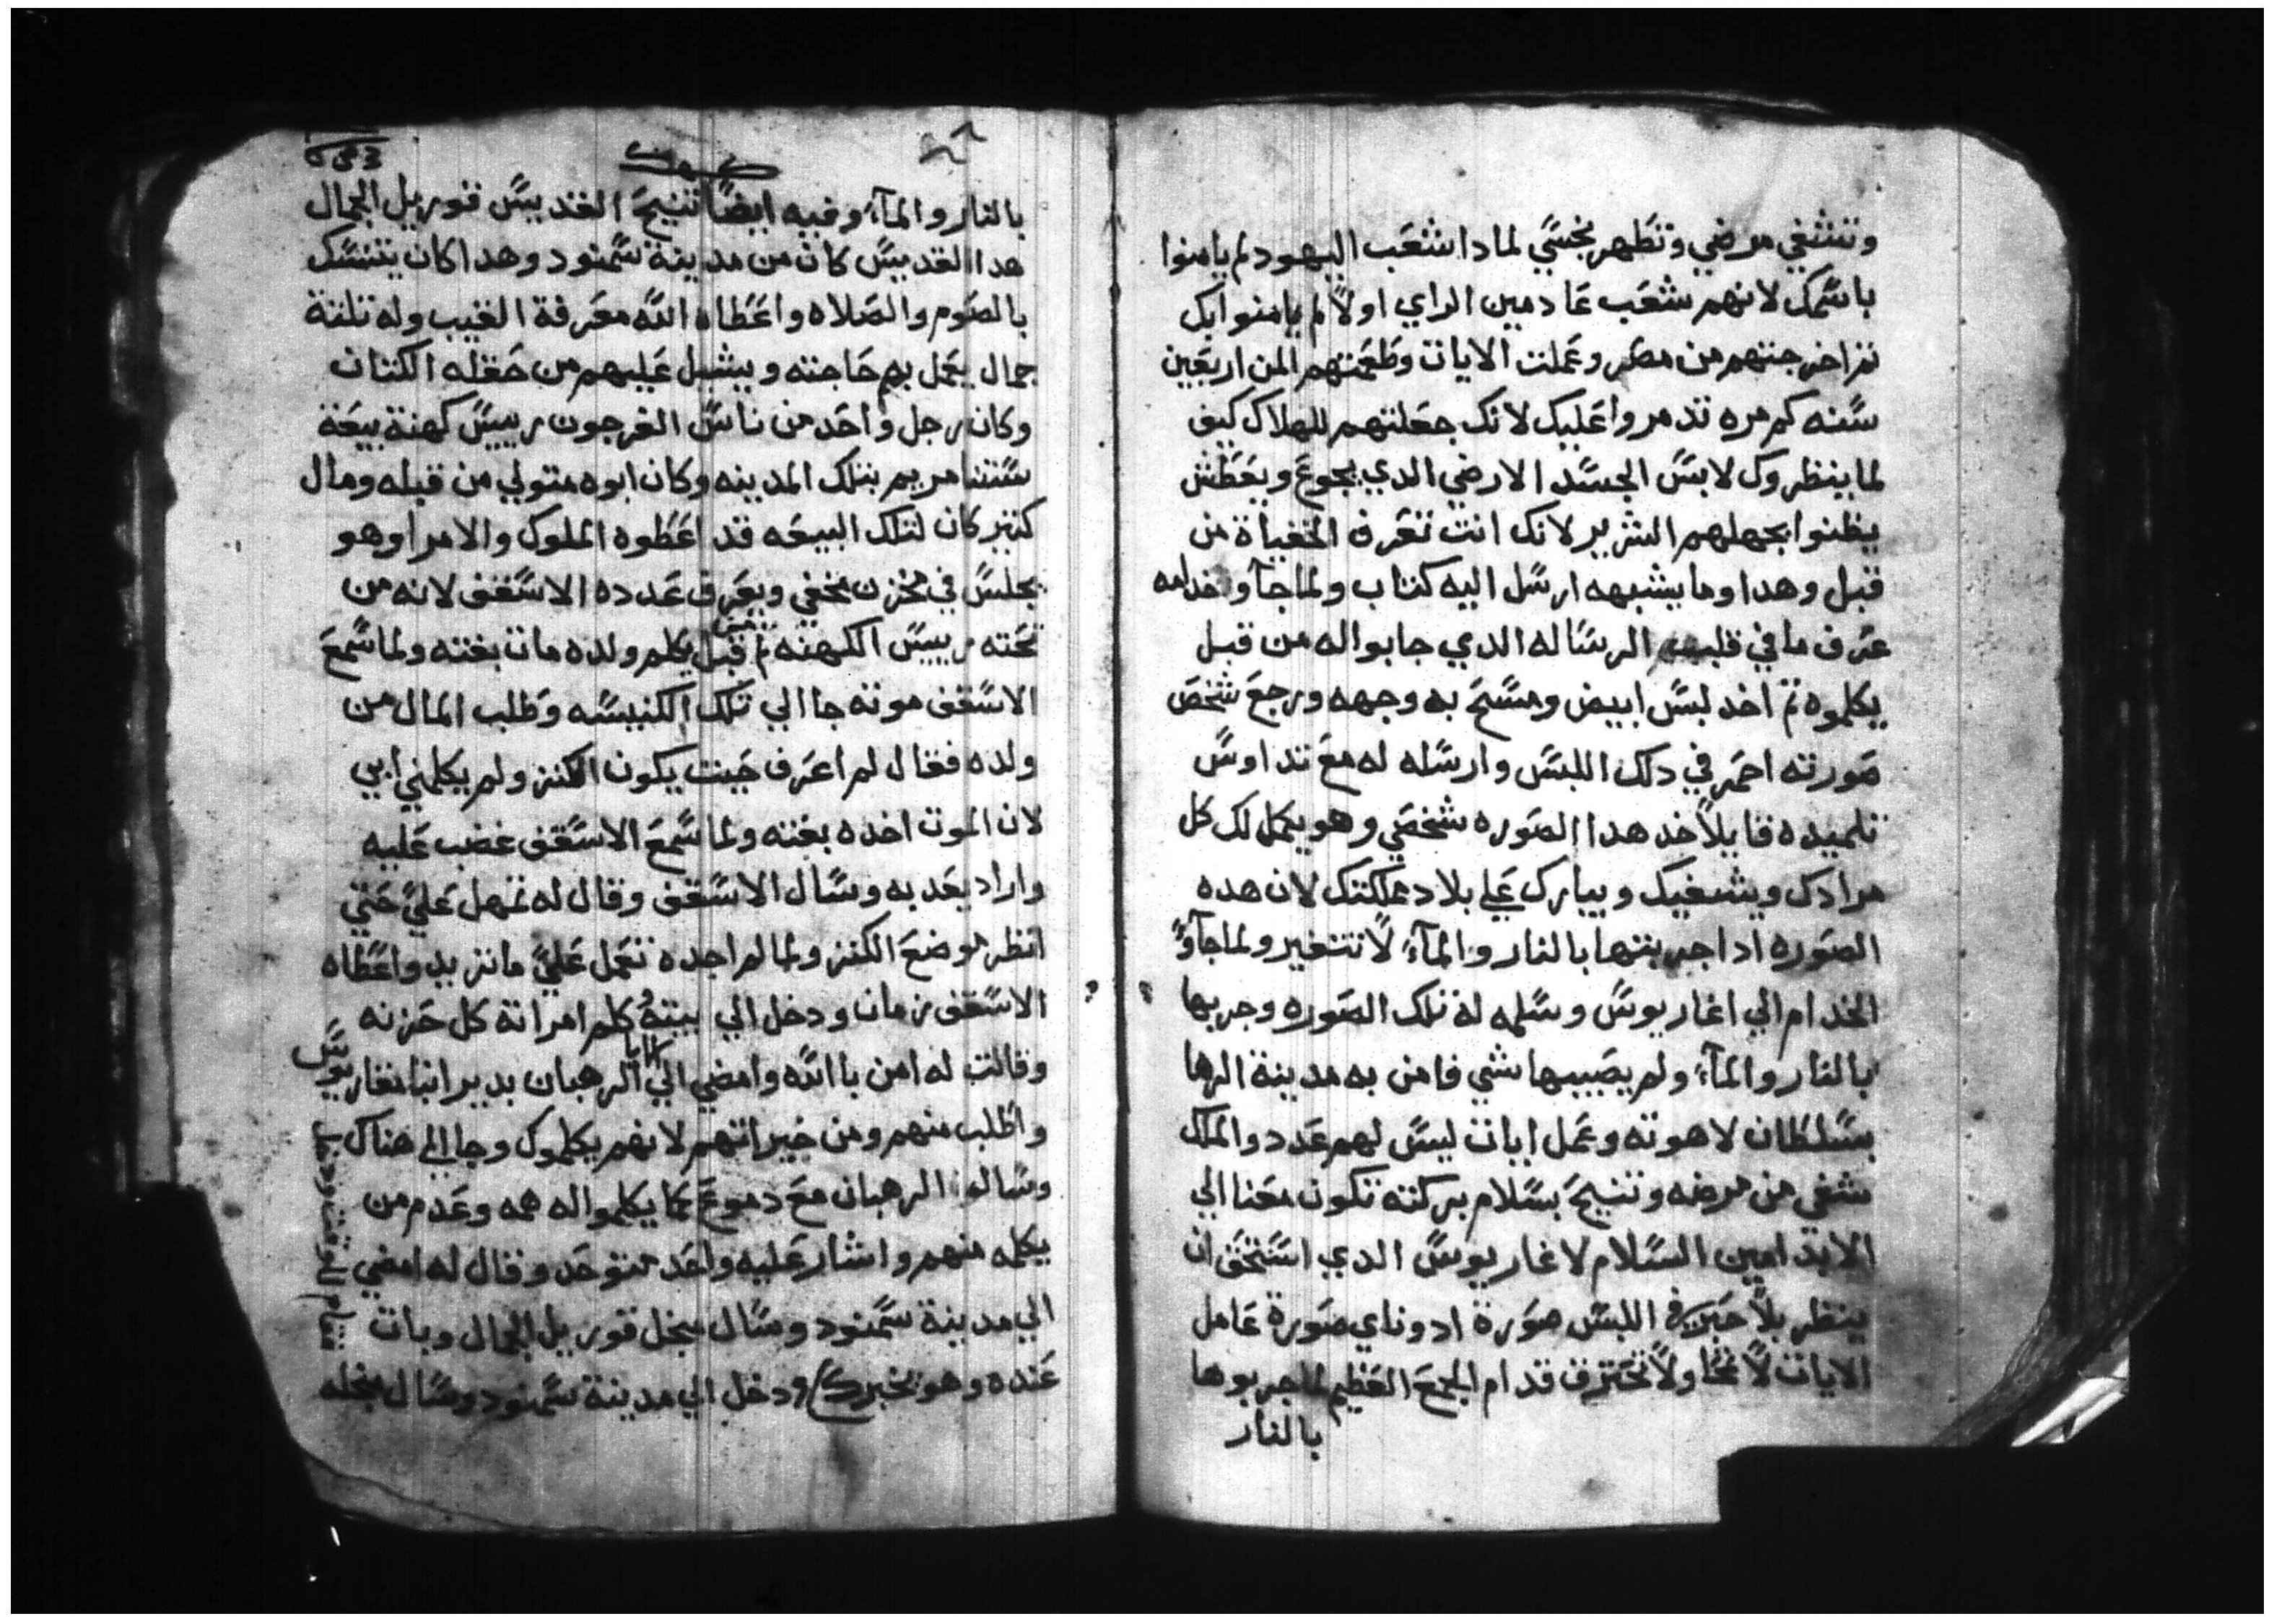 وتشفي مرضي وتطهر نجسي لمادا شعب اليهود لم يامنوا
باسمك لانهم شعب عادمين الراي اولاً لم يامنوا بك
تم اخرجتهم من مصر وعملت الايات وطعمتهم المن اربعين
سنه كم مره تدمروا عليك لانك جعلتهم للهلاك كيف
لما ينظروك لابس الجسد الارضي الدي يجوع ويعطش
يظنوا بجهلهم الشرير لانك انت تعرف الخفياة من
قبل وهدا وما يشبهه ارسل اليه كتاب ولما جآو خدامه
عرف ما في قلبهم الرساله الدي جابوا له من قبل
يكلموه تم اخد لبس ابيض ومسح به وجهه ورجع شخص
صورته احمر في دلك اللبس وارسله له مع تداوس
تلميده قايلاً خد هدا الصوره شخصي وهو يكمل لك كل
مرادك ويشفيك ويبارك علي بلاد مملكتك لان هده
الصوره ادا جربتها بالنار والمآء لا تتغير ولما جآوا
الخدام الي اغاريوس وسلمه له تلك الصوره وجربها
بالنار والمآء ولم يصيبها شي فامن به مدينة الرها
بسلطان لاهوته وعمل ايات ليس لهم عدد والملك
شفي من مرضه وتنيح بسلام بركته تكون معنا الي
الابد امين السلام لاغاريوس الدي استحق ان
ينظر بلا حبر في اللبس صورة ادوناي صورة عامل
الايات لا تمحا ولا تحترق قدام الجمع العظيم لما جربوها
بالنار
بالنار والمآء وفيه ايضاً تنيح القديس قوريل الجمال
هدا القديس كان من مدينة سمنود وهدا كان يتنسك
بالصوم والصلاه واعطاه الله معرفة الغيب وله تلتة
جمال يعمل بهم حاجته ويشيل عليهم من حقله الكتان
وكان رجل واحد من ناس الفرجون رييس كهنة بيعة
ستنا مريم بتلك المدينه وكان ابوه متولي من قبله ومال
كتير كان لتلك البيعه قد اعطوه الملوك والامرا وهو
يجلس في مخزن مخفي ويعرف عدده الاسقف لانه من
تحته رييس الكهنه تم من قبل يكلم ولده مات بغته ولما سمع
الاسقف موته جا الي تلك الكنيسه وطلب المال من
ولده فقال لم اعرف حيت يكون الكنز ولم يكلمني ابي
لان الموت اخده بغته ولما سمع الاسقف غضب عليه
واراد يعدبه وسال الاسقف وقال له تمهل علي حتي
انظر موضع الكنز ولما لم اجده تعمل علي ما تريد واعطاه
الاسقف زمان ودخل الي بيته وكلم امراتة كل حزنه
وقالت له امن با الله وامضي الي الابا الرهبان بدير انبا مقاريوس
واطلب منهم ومن خيراتهم لانهم يكلموك وجا الي هناك
وسالو الرهبان مع دموع كما يكلموا له همه وعدم من
يكلمه منهم واشار عليه واحد متوحد وقال له امضي
الي مدينة سمنود وسال منجل قوريل الجمال وبات
عنده وهو يخبرك ودخل الي مدينة سمنود وسال منجله